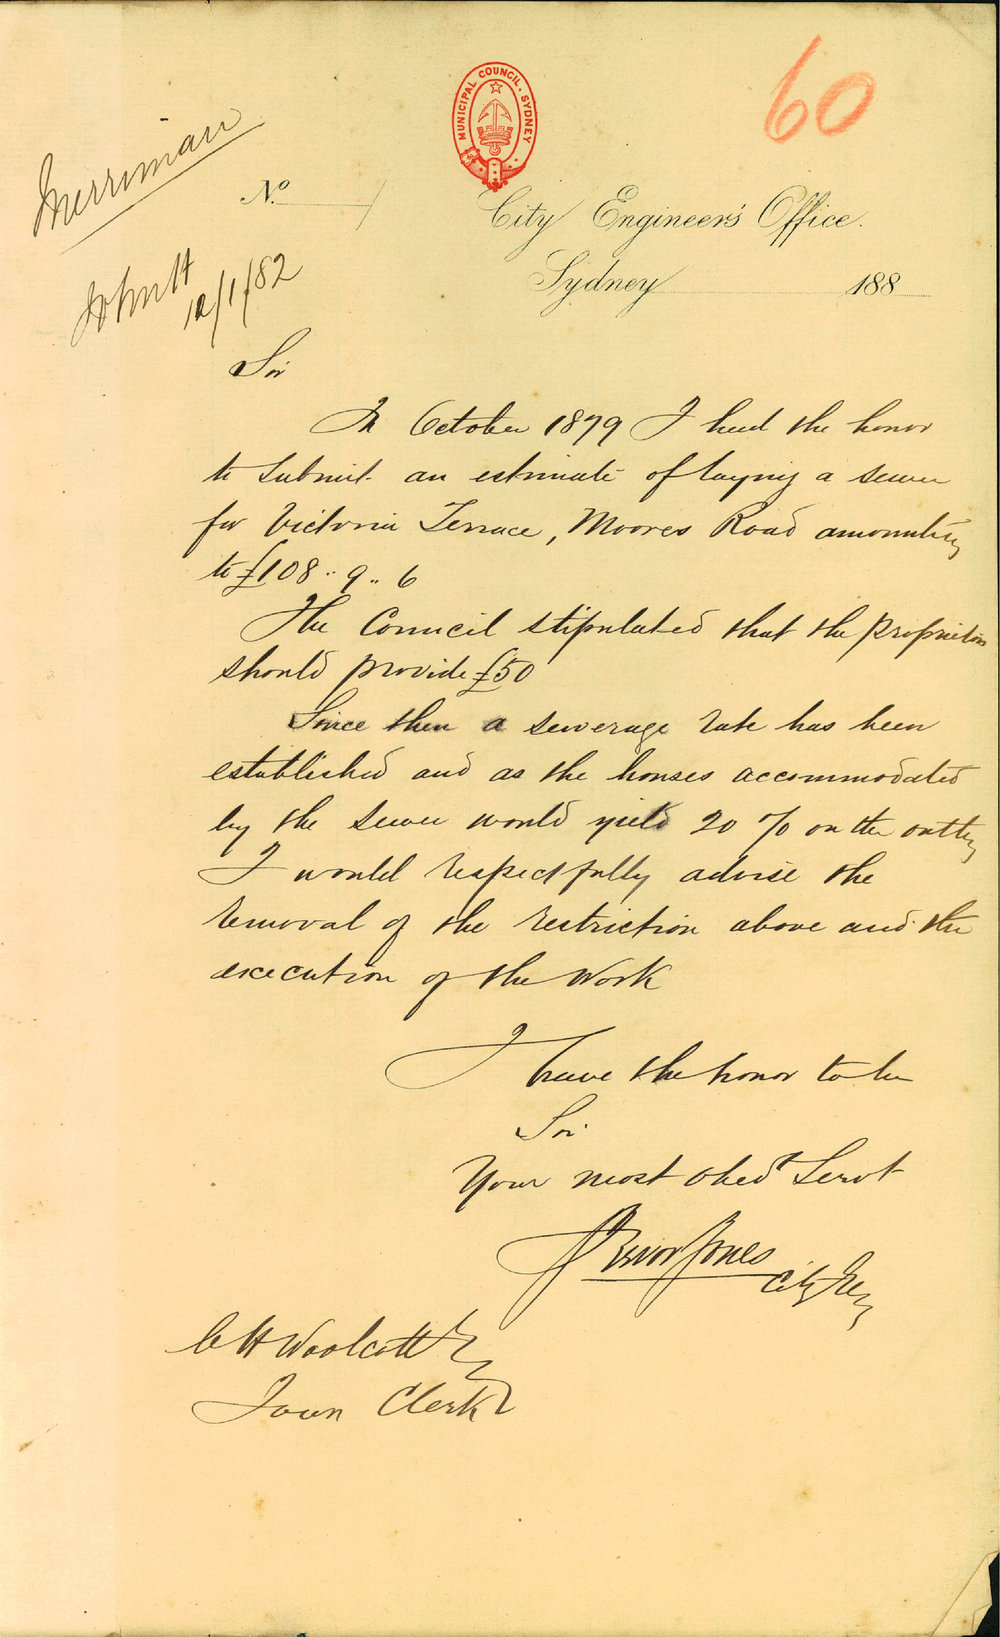 60
MUNICIPAL COUNCIL. SYDNEY
Merriman
No
City Engineer's Office.
Sydney 188
John H
12/1/82
Sir
In October 1879 I had the honor
to submit an estimate of laying a sewer
for Victoria Terrace, Moores Road amounting
to £108..9..6
The Council stipulated that the proprietors
should provide £50
Since then a sewerage rate has been
established and as the houses accommodated
by the sewer would yield 20 % on the outlay
I would respectfully advise the
removal of the restriction above and the
execution of the work
I have the honor to be
Sir
Your most obedt Servt
Trevor Jones
City
C H Woolcott
Town Clerk